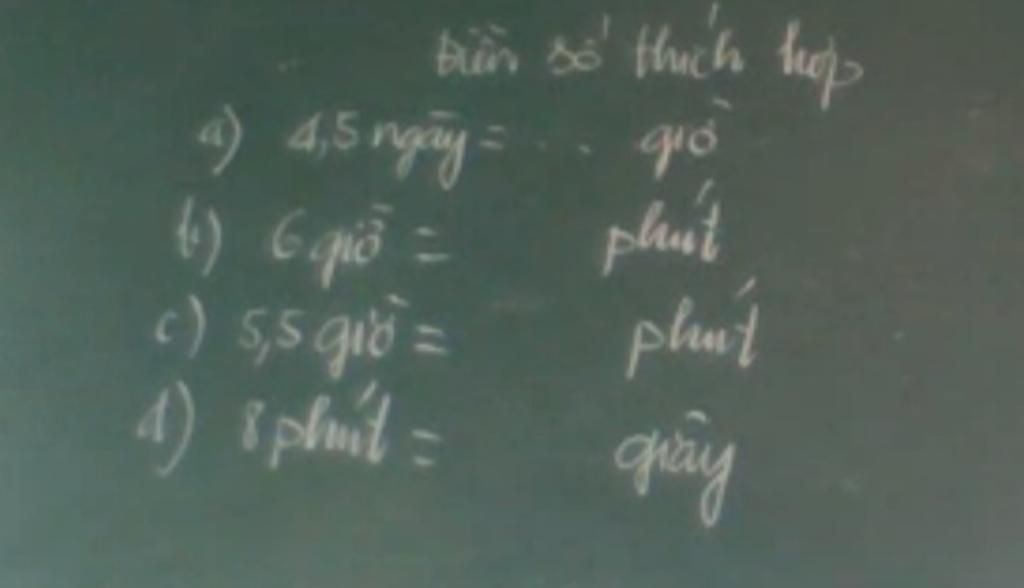 điền số thích hợp
a) 4,5 ngày = ... giờ
b) 6 giờ = phút
c) 5,5 giờ = phút
d) 8 phút = giây